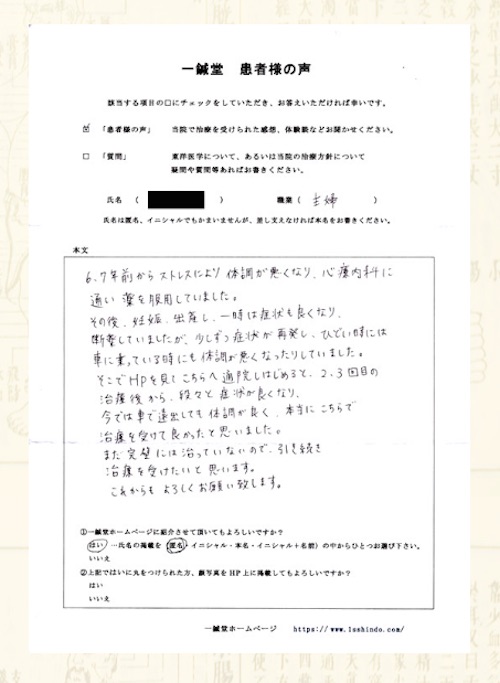 一鍼堂 患者様の声
該当する項目の□にチェックをしていただき、お答えいただければ幸いです。
☑ 「患者様の声」 当院で治療を受けられた感想、体験談などお聞かせください。
□ 「質問」 東洋医学について、あるいは当院の治療方針について
疑問や質問等あればお書きください。
氏名 ( ) 職業 ( 主婦 )
氏名は匿名、イニシャルでもかまいませんが、差し支えなければ本名をお書きください。
本文
6、7年前からストレスにより体調が悪くなり、心療内科に
通い薬を服用していました。
その後、妊娠、出産し、一時は症状も良くなり、
断薬していましたが、少しずつ症状が再発し、ひどい時には
車に乗っている時にも体調が悪くなったりしていました。
そこでHPを見てこちらへ通院しはじめると、2、3回目の
治療後から、段々と症状が良くなり、
今では車で遠出しても体調が良く、本当にこちらで
治療を受けて良かったと思いました。
まだ完璧には治っていないので、引き続き
治療を受けたいと思います。
これからもよろしくお願い致します。
①一鍼堂ホームページに紹介させて頂いてもよろしいですか?
はい …氏名の掲載を (匿名・イニシャル・本名・イニシャル+名前) の中からひとつお選び下さい。
いいえ
②上記ではいに丸をつけられた方、顔写真をHP上に掲載してもよろしいですか?
はい
いいえ
一鍼堂ホームページ https://www.1sshindo.com/